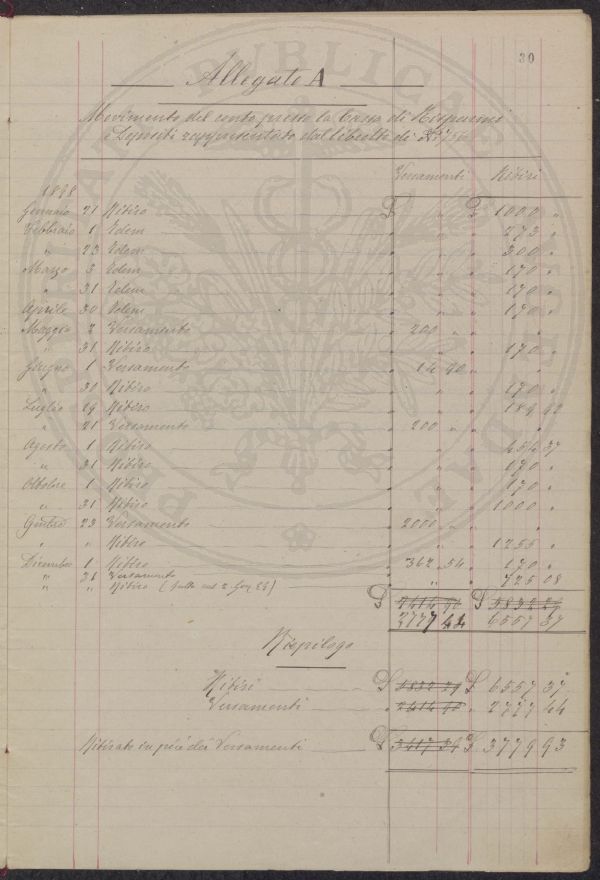 30
Allegato A
Movimento del conto presso la Cassa di Risparmi
e Depositi rappresentato dal libretto di
Versamenti Ritiri
1898
Gennaio 21 Ritiro £ " " £ 1000 "
Febbraio 1 Idem " " " 273 "
" 23 Idem " " " 300 "
Marzo 3 Idem " " " 170 "
" 31 Idem " " " 170 "
Aprile 30 Idem " " " 170 "
Maggio 2 Versamento " 200 " " "
" 31 Ritiro " " " 170 "
Giugno 1 Versamento " 14 90 " "
" 30 Ritiro " " " 170 "
Luglio 29 Ritiro " " " 189 92
" 21 Versamento " 200 " " "
Agosto 1 Ritiro " " " 454 37
" 31 Ritiro " " " 170 "
Ottobre 1 Ritiro " " " 170 "
" 31 Ritiro " " " 1000 "
23 Versamento " 2000 " " "
" " Ritiro " " " 1255 "
Dicembre 1 Ritiro " 362 54 " 170 "
" 31 Versamento " " 725 08
" " Ritiro
£ 2414 90 £ 5832 29
2777 44 6557 37
Riepilogo
Ritiri £ 5832 29 £ 6557 37
Versamenti " 2414 90 " 2777 44
Ritirato in più dei Versamenti £ 3417 39 £ 3779 93